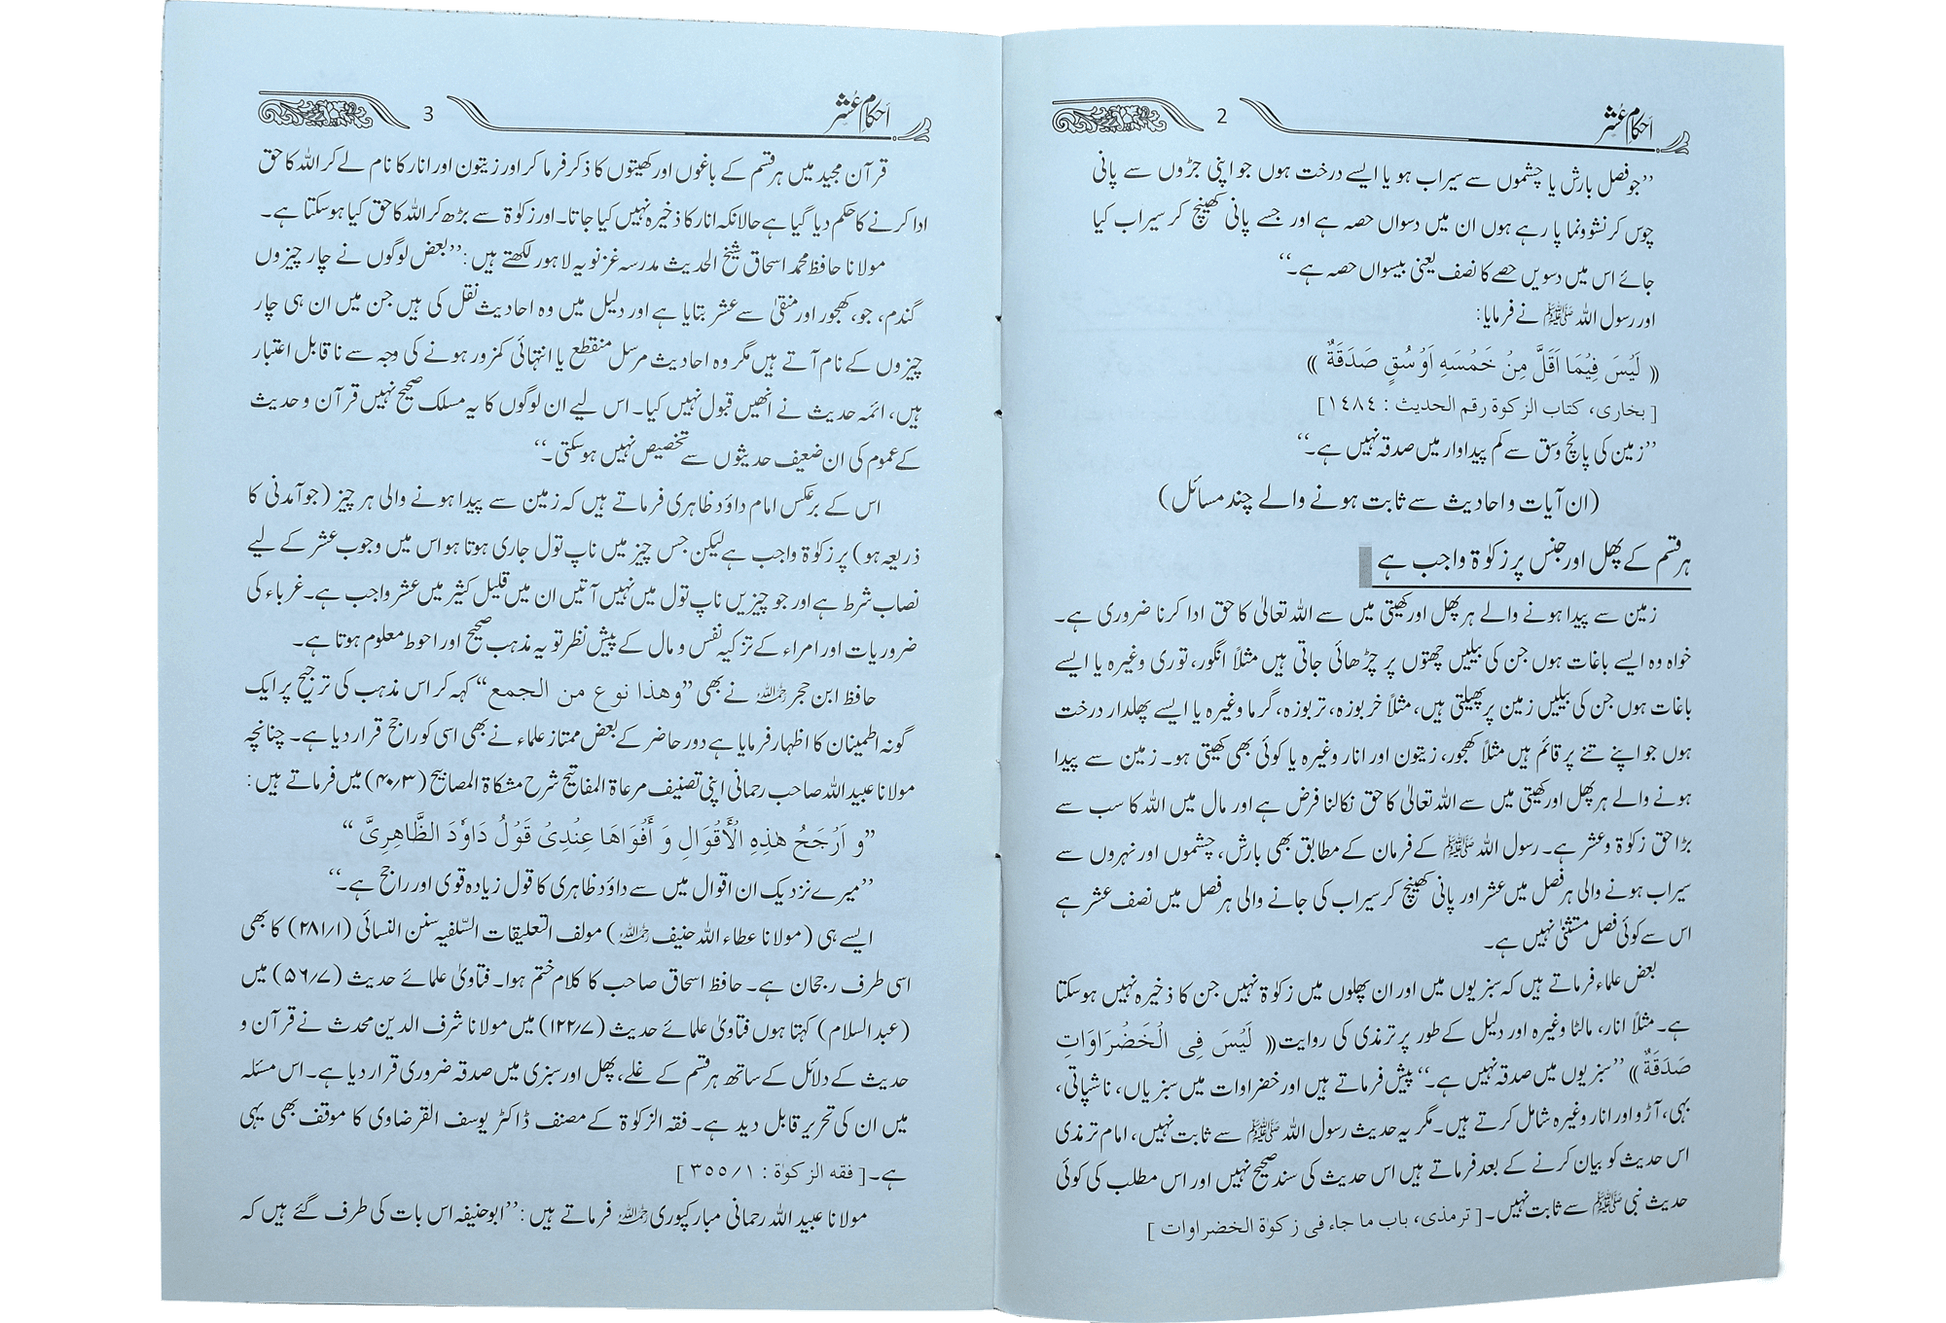 احکامِ عُشر
2
’’جو فصل بارش یا چشموں سے سیراب ہو یا ایسے درخت ہوں جو اپنی جڑوں سے پانی
چوس کر نشوونما پا رہے ہوں ان میں دسواں حصہ ہے اور جسے پانی کھینچ کر سیراب کیا
جائے اس میں دسویں حصے کا نصف یعنی بیسواں حصہ ہے۔‘‘
اور رسول اللہ ﷺ نے فرمایا:
﴿ لَيْسَ فِيْمَا اَقَلَّ مِنْ خَمْسَهِ اَوْسُقٍ صَدَقَةٌ ﴾
[ بخاری، کتاب الزکوة رقم الحديث : ١٤٨٤]
’’زمین کی پانچ وسق سے کم پیداوار میں صدقہ نہیں ہے۔‘‘
(ان آیات و احادیث سے ثابت ہونے والے چند مسائل)
ہر قسم کے پھل اور جنس پر زکوٰۃ واجب ہے
زمین سے پیدا ہونے والے ہر پھل اور کھیتی میں سے اللہ تعالیٰ کا حق ادا کرنا ضروری ہے۔
خواہ وہ ایسے باغات ہوں جن کی بیلیں چھتوں پر چڑھائی جاتی ہیں مثلاً انگور، توری وغیرہ یا ایسے
باغات ہوں جن کی بیلیں زمین پر پھیلتی ہیں، مثلاً خربوزہ، تربوزہ، گرما وغیرہ یا ایسے پھلدار درخت
ہوں جو اپنے تنے پر قائم ہیں مثلاً کھجور، زیتون اور انار وغیرہ یا کوئی بھی کھیتی ہو۔ زمین سے پیدا
ہونے والے ہر پھل اور کھیتی میں سے اللہ تعالیٰ کا حق نکالنا فرض ہے اور مال میں اللہ کا سب سے
بڑا حق زکوٰۃ و عشر ہے۔ رسول اللہ ﷺ کے فرمان کے مطابق بھی بارش، چشموں اور نہروں سے
سیراب ہونے والی ہر فصل میں عشر اور پانی کھینچ کر سیراب کی جانے والی ہر فصل میں نصف عشر ہے
اس سے کوئی فصل مستثنیٰ نہیں ہے۔
بعض علماء فرماتے ہیں کہ سبزیوں میں اور ان پھلوں میں زکوٰۃ نہیں جن کا ذخیرہ نہیں ہوسکتا
ہے۔ مثلاً انار، مالٹا وغیرہ اور دلیل کے طور پر ترمذی کی روایت ﴿ لَيْسَ فِى الْخَضْرَاوَاتِ
صَدَقَةٌ ﴾ ’’سبزیوں میں صدقہ نہیں ہے۔‘‘ پیش فرماتے ہیں اور خضراوات میں سبزیاں، ناشپاتی،
بہی، آڑو اور انار وغیرہ شامل کرتے ہیں۔ مگر یہ حدیث رسول اللہ ﷺ سے ثابت نہیں، امام ترمذی
اس حدیث کو بیان کرنے کے بعد فرماتے ہیں اس حدیث کی سند صحیح نہیں اور اس مطلب کی کوئی
حدیث نبی ﷺ سے ثابت نہیں۔ [ ترمذی، باب ما جاء فی زکوٰة الخضراوات ]
احکامِ عُشر
3
قرآن مجید میں ہر قسم کے باغوں اور کھیتوں کا ذکر فرما کر اور زیتون اور انار کا نام لے کر اللہ کا حق
ادا کرنے کا حکم دیا گیا ہے حالانکہ انار کا ذخیرہ نہیں کیا جاتا۔ اور زکوٰۃ سے بڑھ کر اللہ کا حق کیا ہوسکتا ہے۔
مولانا حافظ محمد اسحاق شیخ الحدیث مدرسہ غزنویہ لاہور لکھتے ہیں: ’’بعض لوگوں نے چار چیزوں
گندم، جو، کھجور اور منقیٰ سے عشر بتایا ہے اور دلیل میں وہ احادیث نقل کی ہیں جن میں ان ہی چار
چیزوں کے نام آتے ہیں مگر وہ احادیث مرسل منقطع یا انتہائی کمزور ہونے کی وجہ سے ناقابل اعتبار
ہیں، ائمہ حدیث نے انھیں قبول نہیں کیا۔ اس لیے ان لوگوں کا یہ مسلک صحیح نہیں قرآن و حدیث
کے عموم کی ان ضعیف حدیثوں سے تخصیص نہیں ہوسکتی۔‘‘
اس کے برعکس امام داؤد ظاہری فرماتے ہیں کہ زمین سے پیدا ہونے والی ہر چیز (جو آمدنی کا
ذریعہ ہو) پر زکوٰۃ واجب ہے لیکن جس چیز میں ناپ تول جاری ہوتا ہو اس میں وجوب عشر کے لیے
نصاب شرط ہے اور جو چیزیں ناپ تول میں نہیں آتیں ان میں قلیل کثیر میں عشر واجب ہے۔ غرباء کی
ضروریات اور امراء کے تزکیہ نفس و مال کے پیش نظر تو یہ مذہب صحیح اور احوط معلوم ہوتا ہے۔
حافظ ابن حجر رحمہ اللہ نے بھی ’’وهذا نوع من الجمع‘‘ کہہ کر اس مذہب کی ترجیح پر ایک
گونہ اطمینان کا اظہار فرمایا ہے دور حاضر کے بعض ممتاز علماء نے بھی اسی کو راجح قرار دیا ہے۔ چنانچہ
مولانا عبیداللہ صاحب رحمانی اپنی تصنیف مرعاۃ المفاتیح شرح مشکاۃ المصابیح (۴۰/۳) میں فرماتے ہیں:
’’و اَرْجَحُ هٰذِهِ الْأَقْوَالِ وَ أَقْوَاهَا عِنْدِىْ قَوْلُ دَاوٗدَ الظَّاهِرِىَّ ‘‘
’’میرے نزدیک ان اقوال میں سے داؤد ظاہری کا قول زیادہ قوی اور راجح ہے۔‘‘
ایسے ہی (مولانا عطاء اللہ حنیف رحمہ اللہ) مولف التعلیقات السّلفیہ سنن النسائی (۲۸۱/۱) کا بھی
اسی طرف رجحان ہے۔ حافظ اسحاق صاحب کا کلام ختم ہوا۔ فتاویٰ علمائے حدیث (۵۶/۷) میں
(عبدالسلام) کہتا ہوں فتاویٰ علمائے حدیث (۱۲۲/۷) میں مولانا شرف الدین محدث نے قرآن و
حدیث کے دلائل کے ساتھ ہر قسم کے غلے، پھل اور سبزی میں صدقہ ضروری قرار دیا ہے۔ اس مسئلہ
میں ان کی تحریر قابل دید ہے۔ فقہ الزکوٰۃ کے مصنف ڈاکٹر یوسف القرضاوی کا موقف بھی یہی
ہے۔ [ فقه الزكوٰة : ٣٥٥/١ ]
مولانا عبید اللہ رحمانی مبارکپوری رحمہ اللہ فرماتے ہیں: ’’ابوحنیفہ اس بات کی طرف گئے ہیں کہ